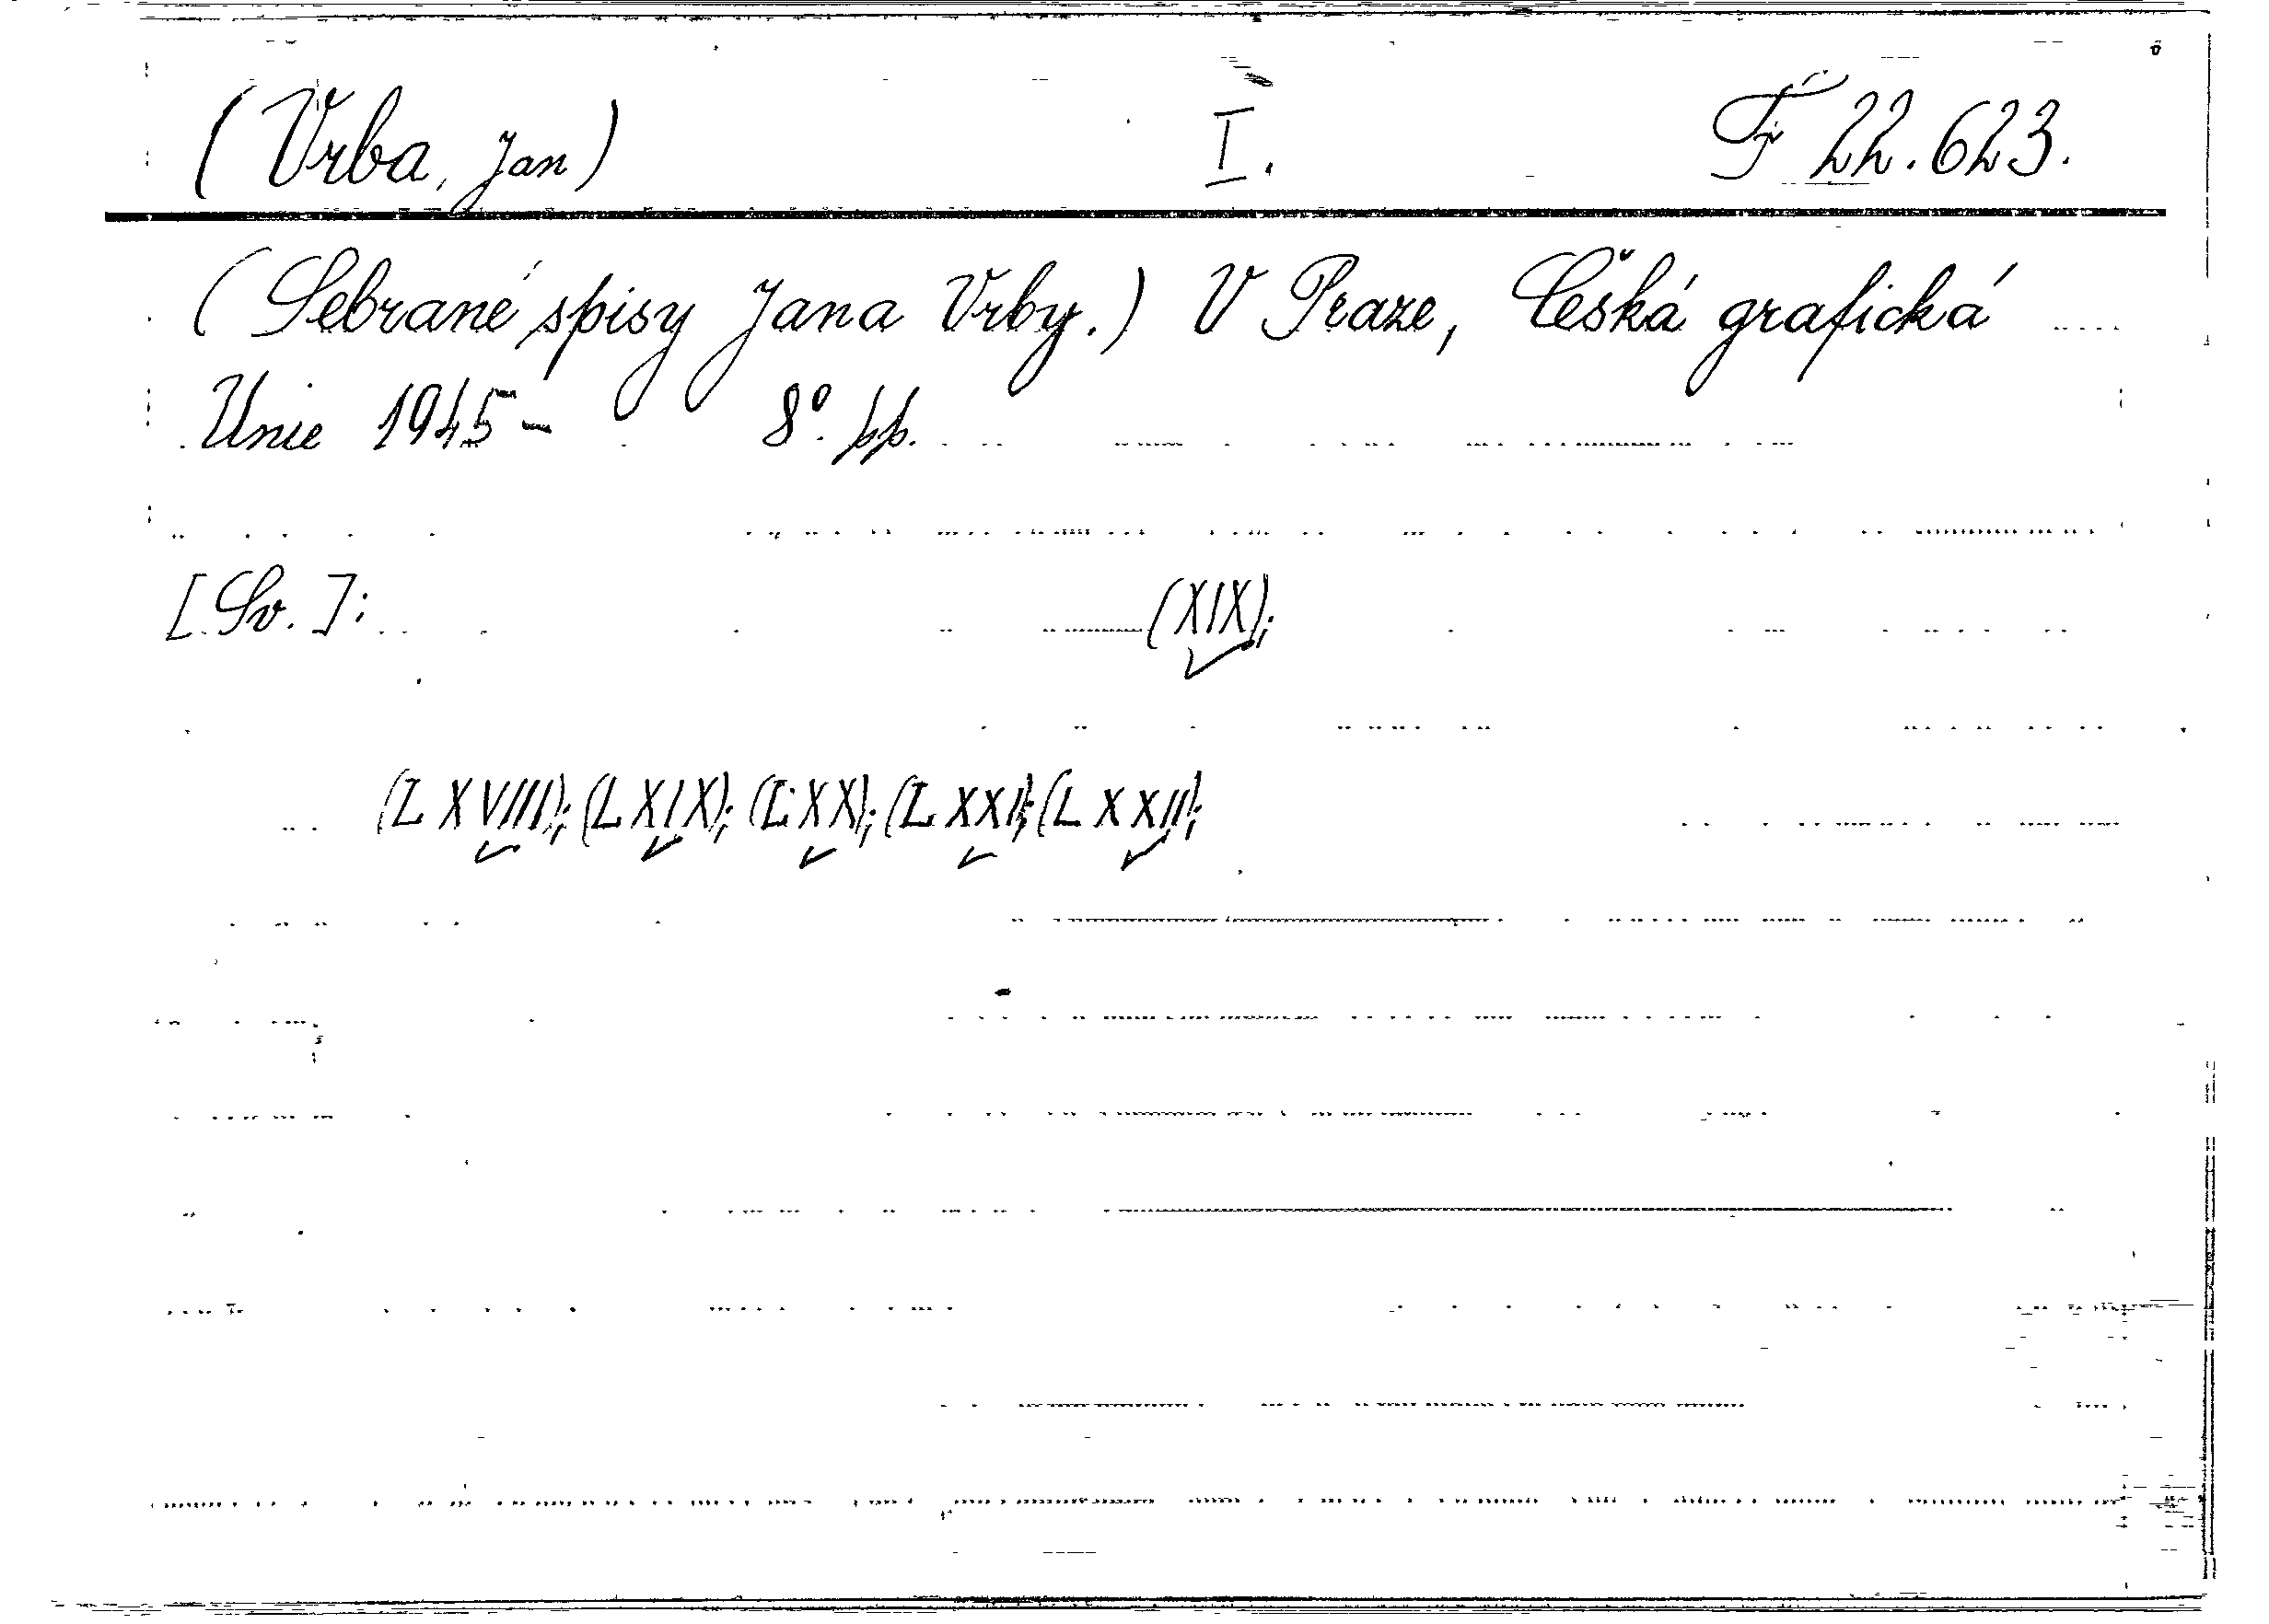 (Vrba, Jan) I. F 22.623.
(Sebrané spisy Jana Vrby.) V Praze, Česká grafická
Unie 1945- 8°. pp.
[Sv. ]: (XIX);
(LXVIII); (LXIX); (LXX); (LXXI); (LXXII);